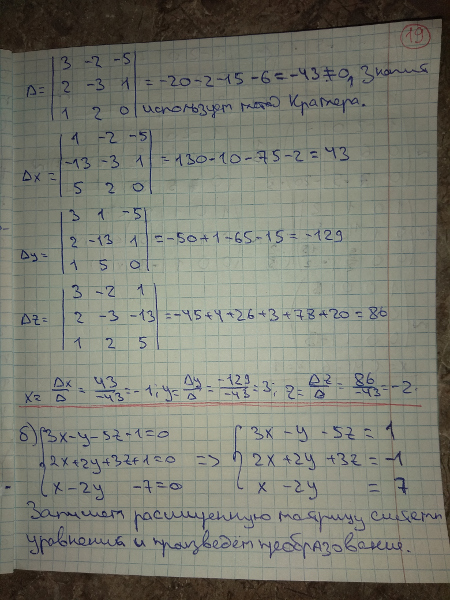 19
Δ = | 3 -2 -5 |
| 2 -3 1 | = -20-2-15-6 = -43 ≠ 0, Значит
| 1 2 0 | использует метод Крамера.
| 1 -2 -5 |
Δx = | -13 -3 1 | = 130-10-75-2 = 43
| 5 2 0 |
| 3 1 -5 |
Δy = | 2 -13 1 | = -50+1-65-15 = -129
| 1 5 0 |
| 3 -2 1 |
Δz = | 2 -3 -13 | = -45+4+26+3+78+20 = 86
| 1 2 5 |
x = Δx/Δ = 43/-43 = -1; y = Δy/Δ = -129/-43 = 3; z = Δz/Δ = 86/-43 = -2.
б) { 3x-y-5z-1=0 { 3x-y-5z = 1
{ 2x+2y+3z+1=0 => { 2x+2y+3z = -1
{ x-2y -7=0 { x -2y = 7
Запишем расширенную матрицу системы
уравнений и произведём преобразование.